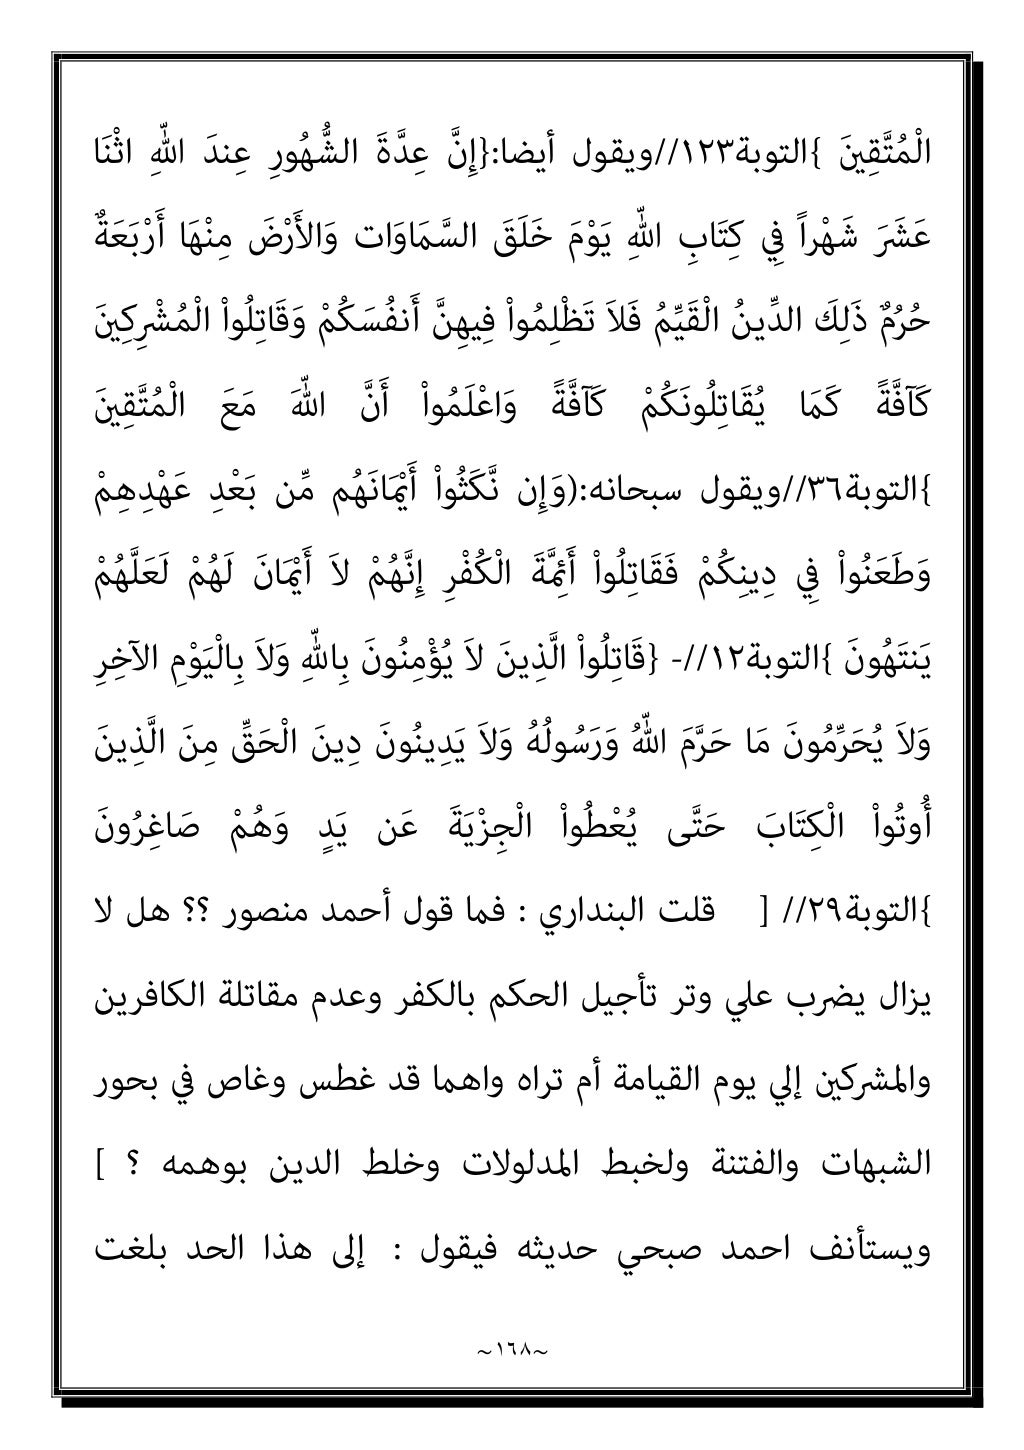 الْمُتَّقِينَ }التوبة١٢٣//ويقول أيضا:{إِنَّ عِدَّةَ الشُّهُورِ عِندَ اللّهِ اثْنَا
عَشَرَ شَهْراً فِي كِتَابِ اللّهِ يَوْمَ خَلَقَ السَّمَاوَات وَالأَرْضَ مِنْهَا أَرْبَعَةٌ
حُرُمٌ ذَلِكَ الدِّينُ الْقَيِّمُ فَلاَ تَظْلِمُواْ فِيهِنَّ أَنفُسَكُمْ وَقَاتِلُواْ الْمُشْرِكِينَ
كَآفَّةً كَمَا يُقَاتِلُونَكُمْ كَآفَّةً وَاعْلَمُواْ أَنَّ اللّهَ مَعَ الْمُتَّقِينَ
}التوبة٣٦//ويقول سبحانه:(وَإِن نَّكَثُواْ أَيْمَانَهُم مِّن بَعْدِ عَهْدِهِمْ
وَطَعَنُواْ فِي دِينِكُمْ فَقَاتِلُواْ أَئِمَّةَ الْكُفْرِ إِنَّهُمْ لاَ أَيْمَانَ لَهُمْ لَعَلَّهُمْ
يَنتَهُونَ }التوبة١٢//- {قَاتِلُواْ الَّذِينَ لاَ يُؤْمِنُونَ بِاللّهِ وَلاَ بِالْيَوْمِ الآخِرِ
وَلاَ يُحَرِّمُونَ مَا حَرَّمَ اللّهُ وَرَسُولُهُ وَلاَ يَدِينُونَ دِينَ الْحَقِّ مِنَ الَّذِينَ
أُوتُواْ الْكِتَابَ حَتَّى يُعْطُواْ الْجِزْيَةَ عَن يَدٍ وَهُمْ صَاغِرُونَ
}التوبة٢٩// [ قلت البنداري : فما قول أحمد منصور ؟؟ هل لا
يزال يضرب علي وتر تأجيل الحكم بالكفر وعدم مقاتلة الكافرين
والمشركين إلي يوم القيامة أم تراه واهما قد غطس وغاص في بحور
الشبهات والفتنة ولخبط المدلولات وخلط الدين بوهمه ؟ ]
ويستأنف احمد صبحي حديثه فيقول : إلى هذا الحد بلغت
~١٦٨~